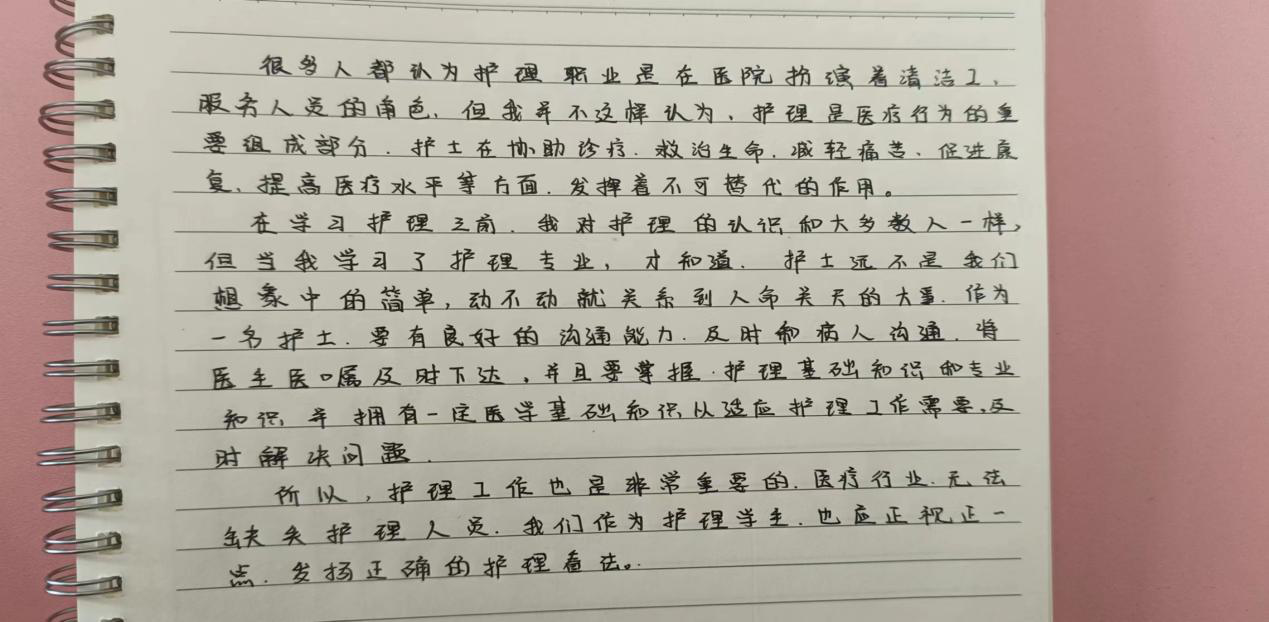 很多人都认为护理职业是在医院扮演着清洁工、
服务人员的角色,但我并不这样认为,护理是医疗行为的重
要组成部分.护士在协助诊疗.救治生命.减轻痛苦、促进康
复、提高医疗水平等方面.发挥着不可替代的作用。
在学习护理之前.我对护理的认识和大多数人一样,
但当我学习了护理专业,才知道.护士远不是我们
想象中的简单,动不动就关系到人命关天的大事.作为
一名护士.要有良好的沟通能力.及时和病人沟通.将
医生医嘱及时下达,并且要掌握.护理基础知识和专业
知识.并拥有一定医学基础知识以适应护理工作需要,及
时解决问题.
所以,护理工作也是非常重要的.医疗行业.无法
缺失护理人员.我们作为护理学生.也应正视正一
点.发扬正确的护理看法。